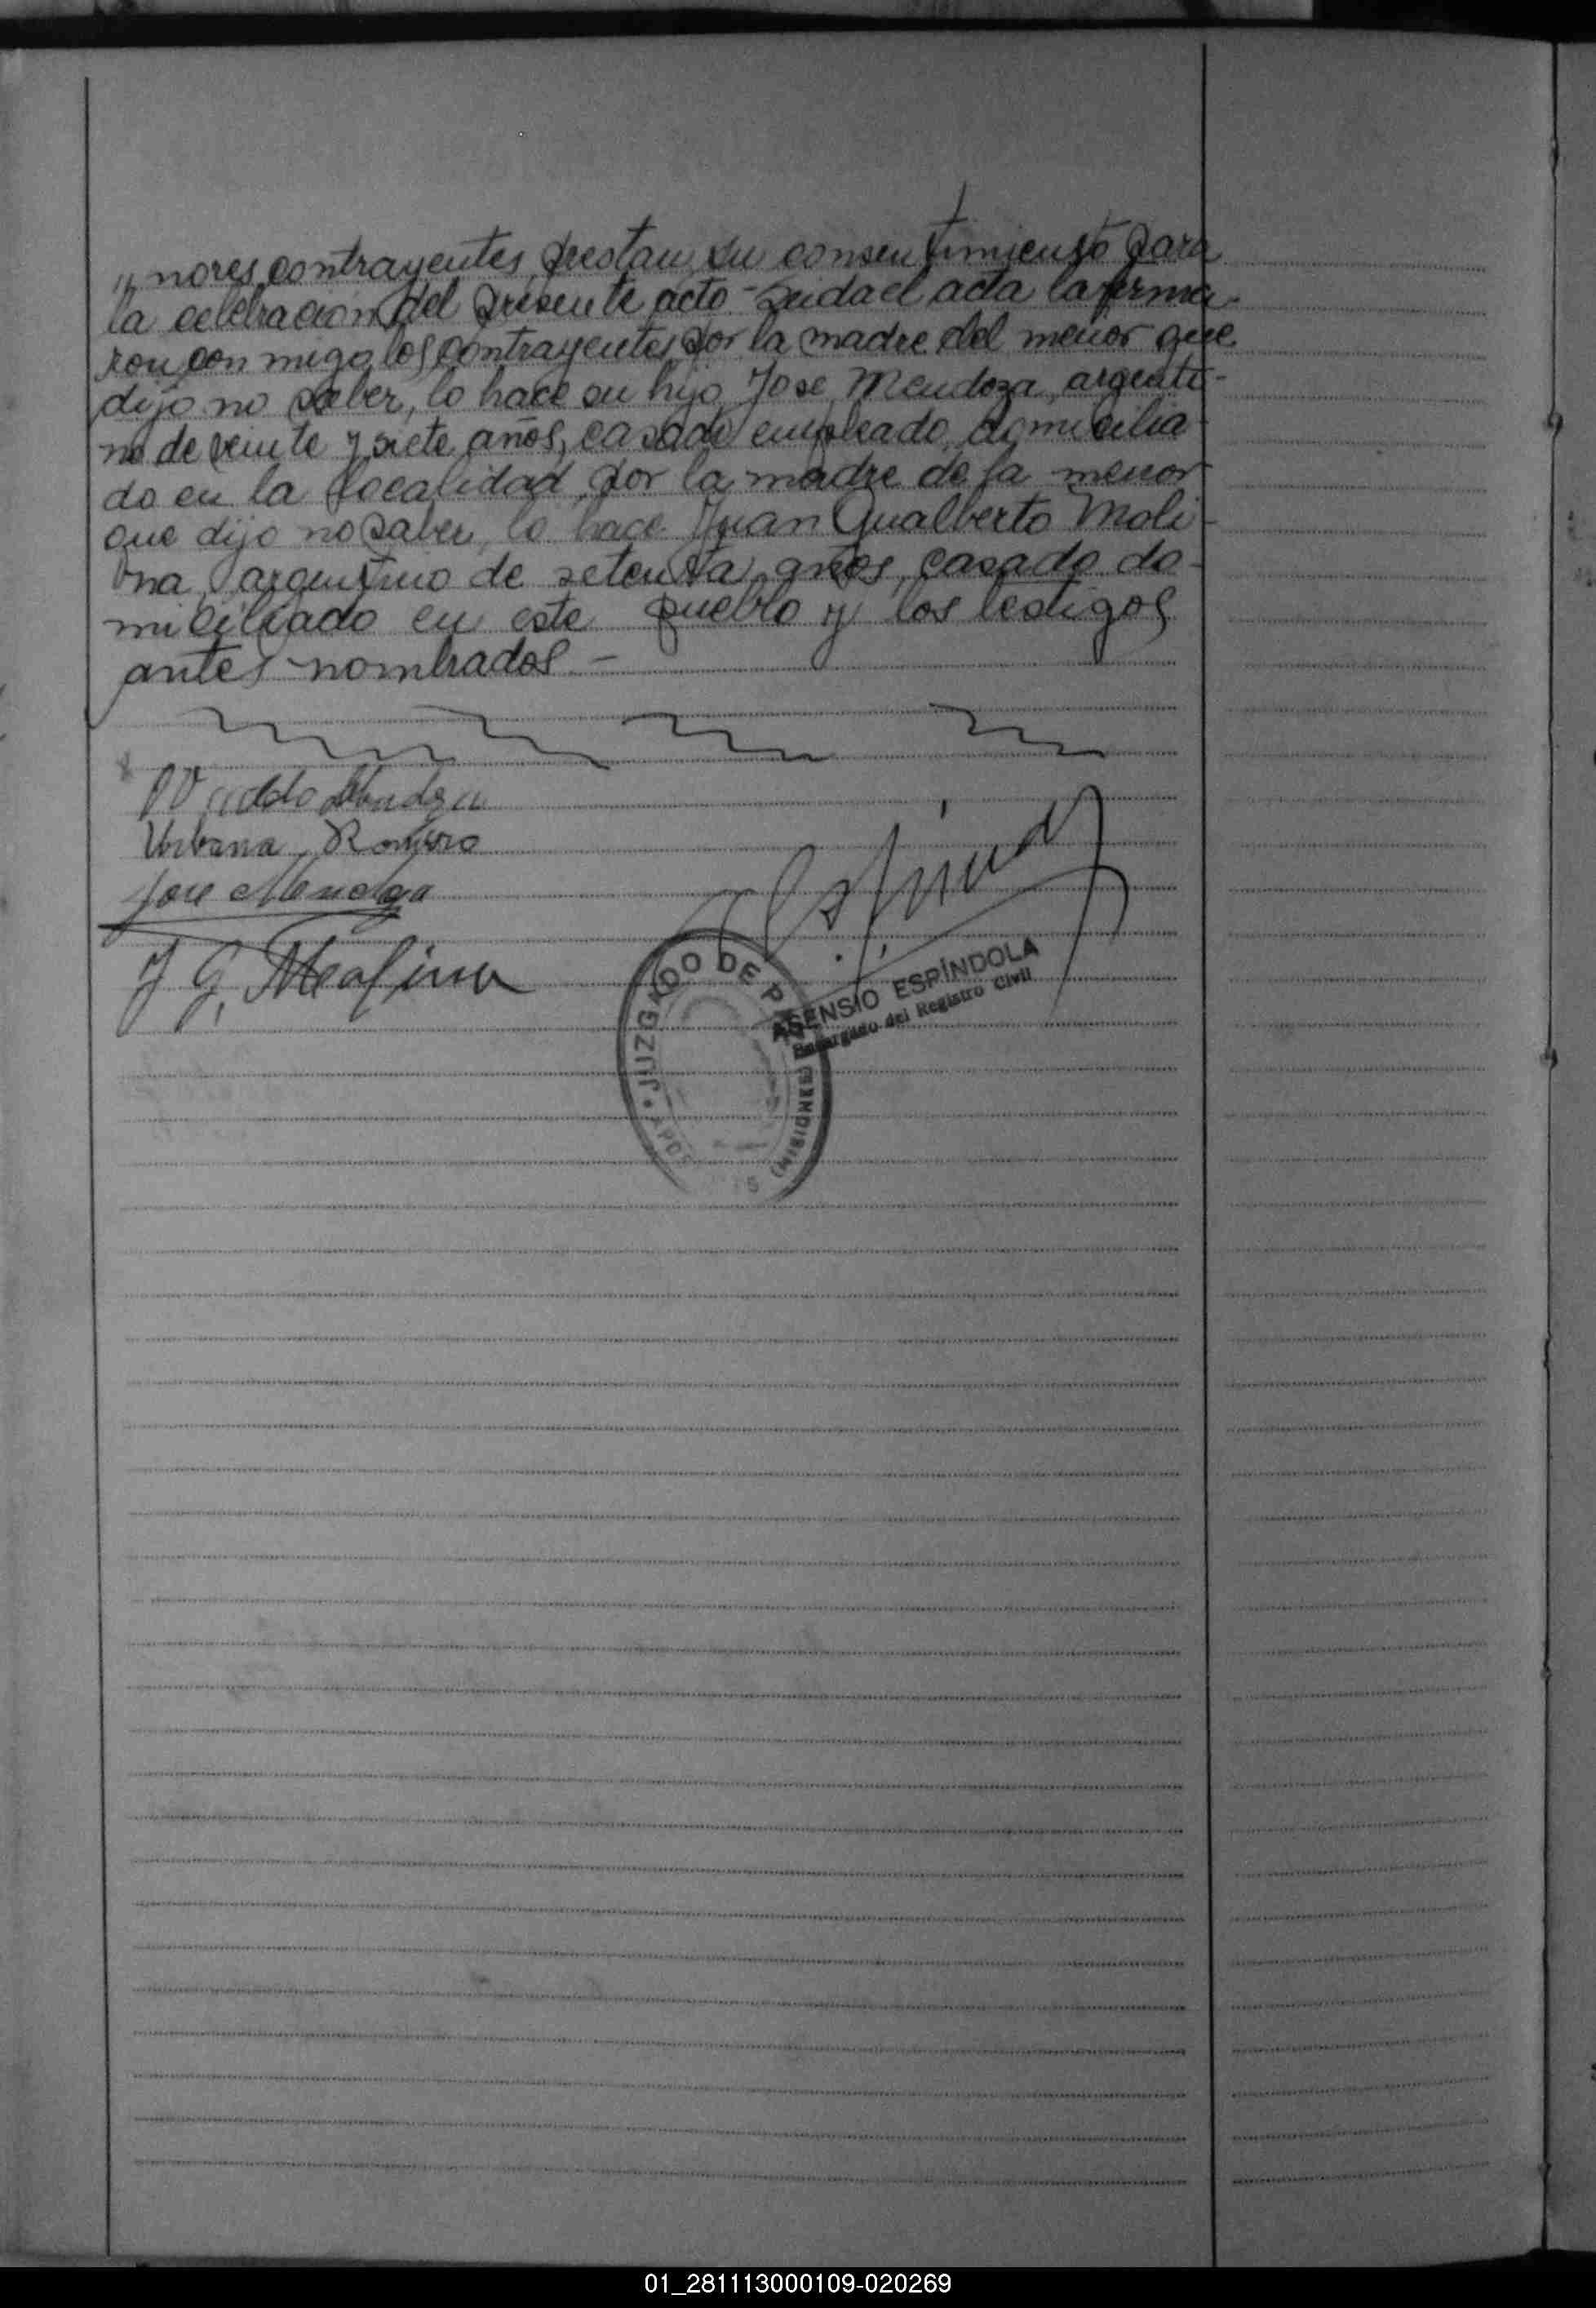 „nores contrayentes, prestan su consentimiento para
la celebracion del presente acto - Leida el acta la firma-
ron con migo los contrayentes, por la madre del menor que
dijo no saber, lo hace su hijo Jose Mendoza, argenti-
no de veinte y siete años, casado empleado, domicilia-
do en la localidad, por la madre de la menor
que dijo no saber, lo hace Juan Gualberto Moli-
na, argentino de setenta años, casado do-
miciliado en este pueblo y los testigos
antes nombrados -
Mendoza
Urbana Romero
Jose Mendoza
J G. Molina
JUZGADO DE P
(MISIONES)
ASENSIO ESPÍNDOLA
Encargado del Registro Civil
01_281113000109-020269